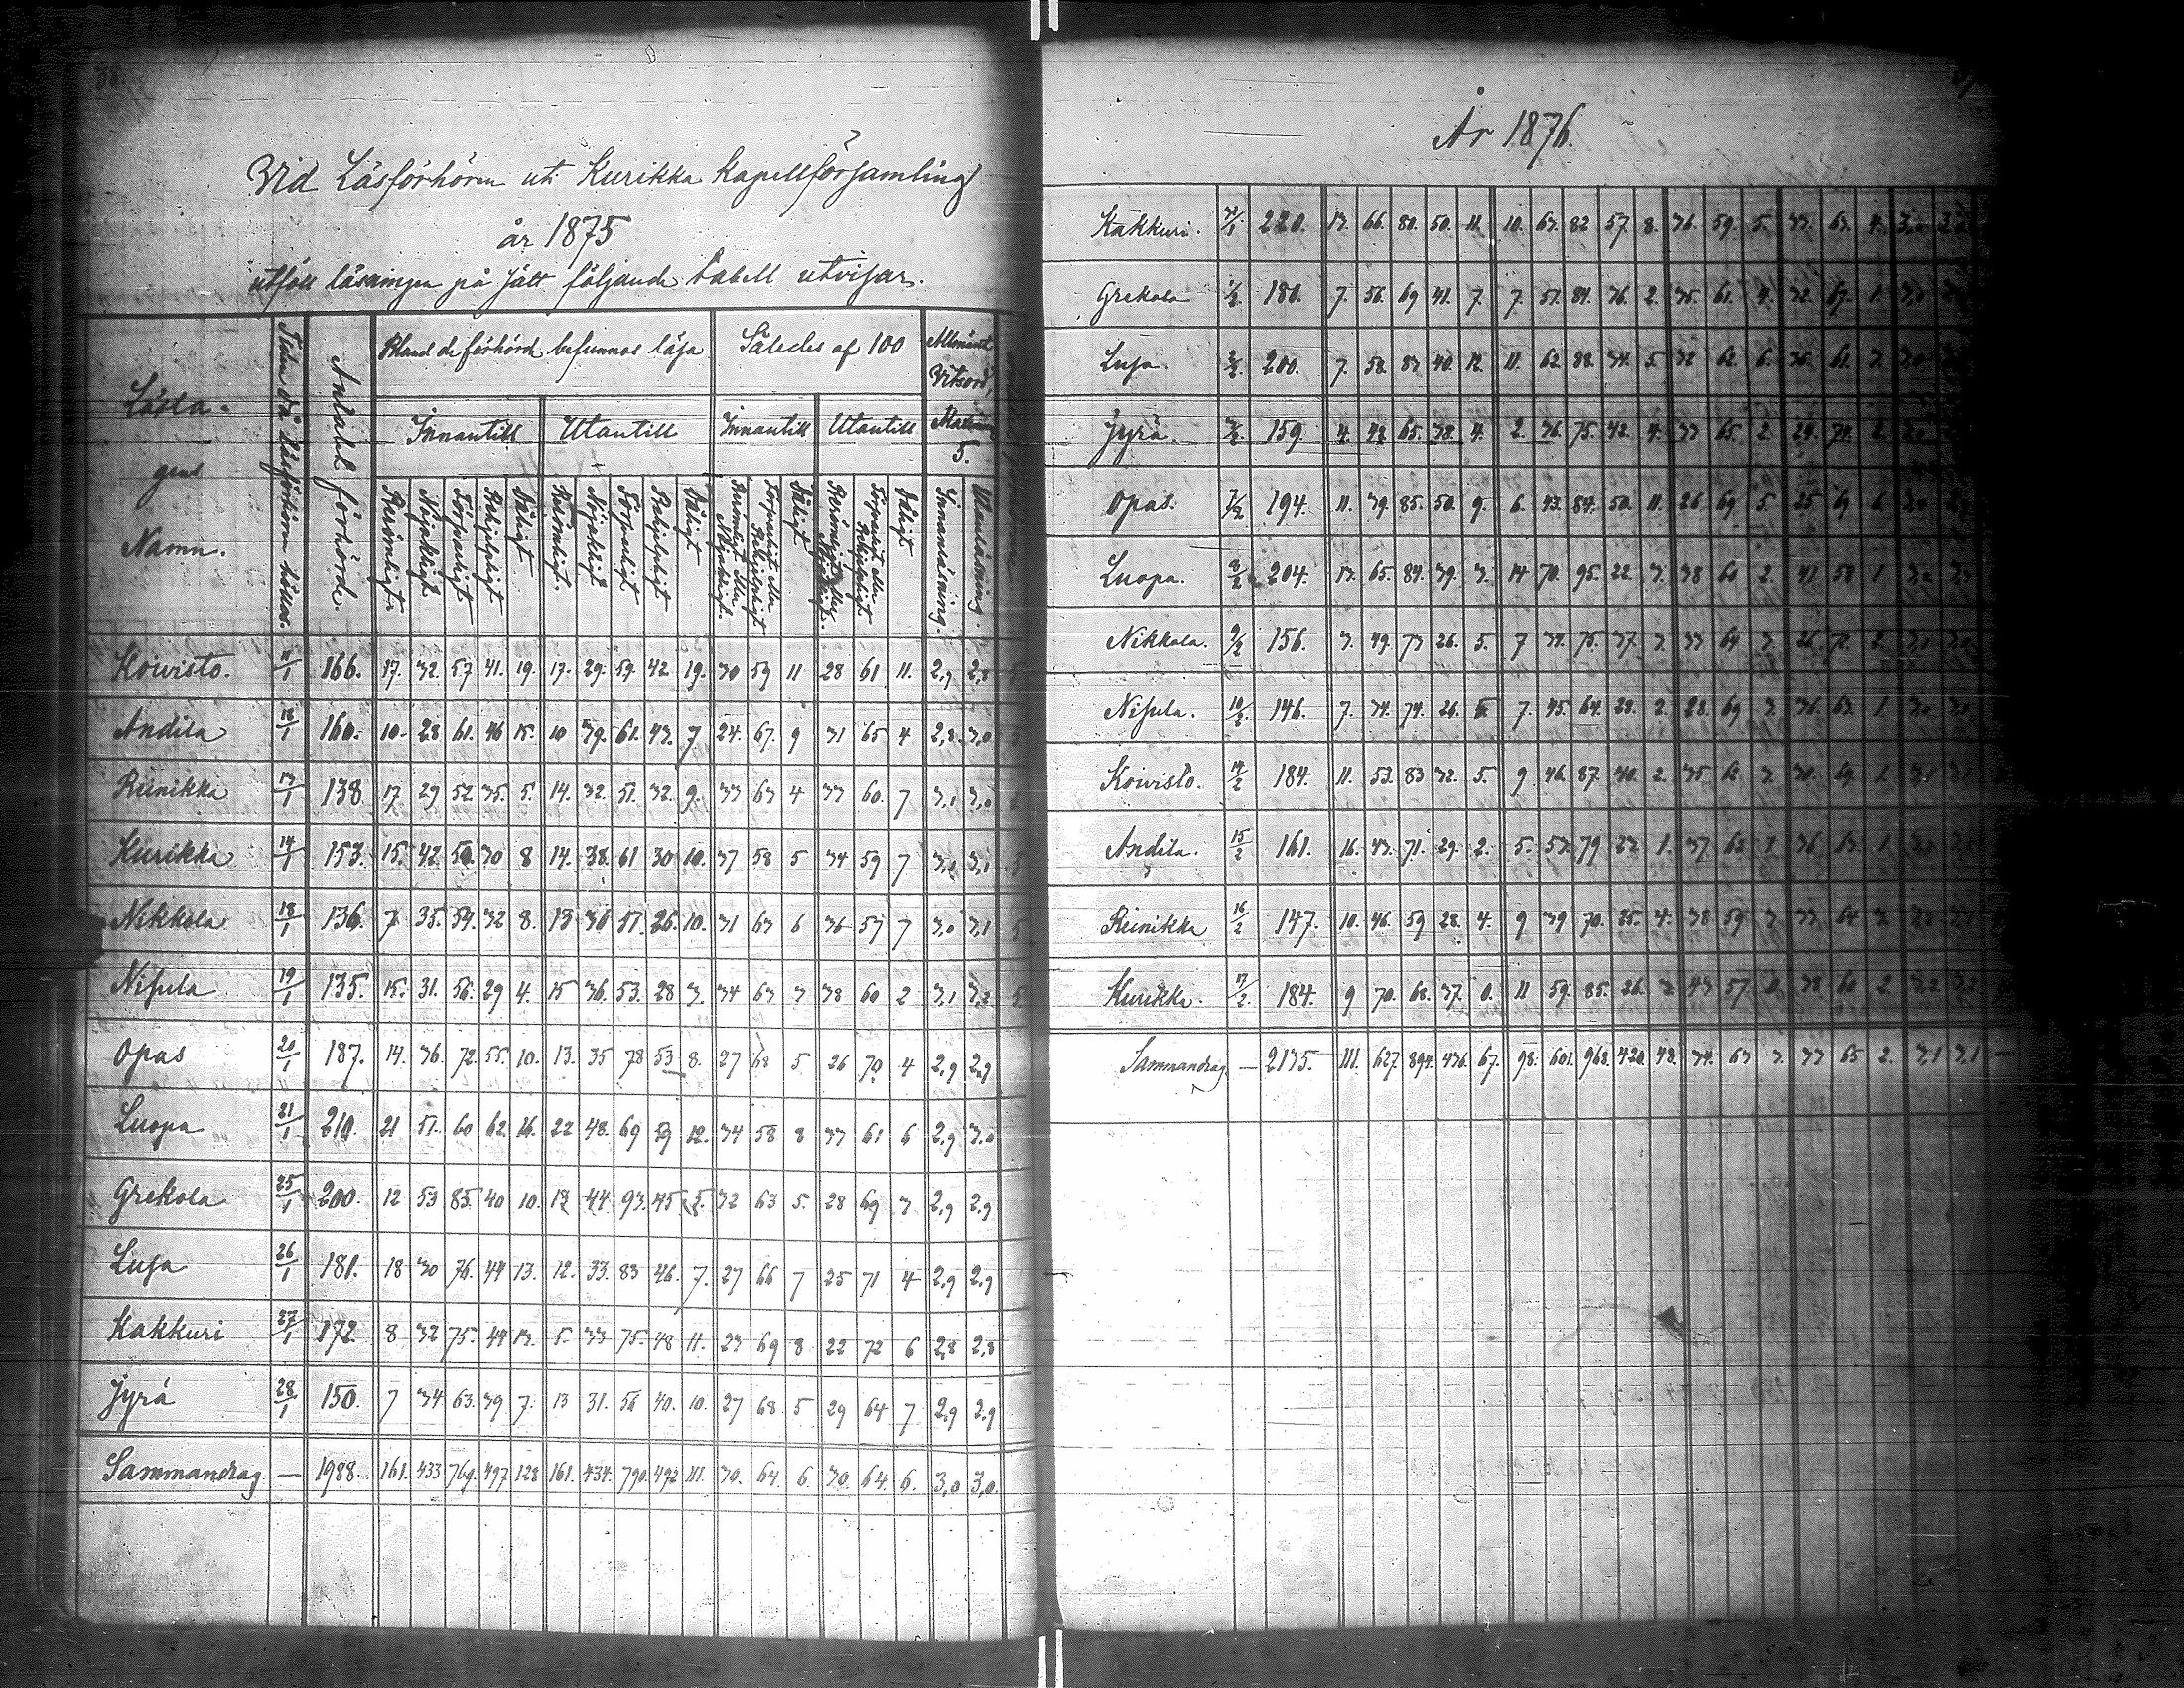 Vid Läsförhören uti Kurikka Kapellförsamling
år 1875
utföll läsningen på sätt följande tabell utvisar.
Läsla-
gens
Namn.
Tiden då Läsförhören hölles.
Antalet förhörde.
Bland de förhörde befunnos läsa
Således af 100
Allmänt
Vitsord
5.
Innantill Utantill Innantill Utantill
Berömligt. Nöjaktigt Försvarligt Behjelpligt Dåligt Berömligt. Nöjaktigt Försvarligt Behjelpligt Dåligt
Innanläsning. Utanläsning.
Koivisto. 11/1 166. 17. 32. 57 41. 19. 17. 29. 59. 42. 19. 30 59 11 28 61 11. 2,9 2,8
Andila 12/1 160. 10. 28 61. 46 15. 10 39. 61. 43. 7 24. 67. 9 31 65 4 2,8. 3,0
Reinikka 13/1 138 17 29 52. 35. 5. 14. 32. 51. 32. 9. 33 63 4 33 60. 7 3,1 3,0
Kurikka 14/1 153. 15. 42. 58. 30 8 14. 38. 61 30 10. 37 58 5 34 59 7 3,1 3,1
Nikkola 18/1 136. 7. 35. 54. 32 8. 13 36 51. 26. 10. 31 63 6 36 57 7 3,0 3,1
Nisula 19/1 135. 15. 31. 56. 29 4. 15 36. 53. 28 3. 34 63 3 38 60 2 3,1 3,2
Opas 20/1 187. 14. 36. 72. 55. 10. 13. 35 78 53 8. 27 68 5 26 70 4 2,9 2,9
Luopa 21/1 210. 21 51. 60 62. 16. 22 48. 69 59 12. 34 58 8 33 61 6 2,9 3,0
Grekola 25/1 200. 12 53 85. 40 10. 13 44. 93. 45 5. 32 63 5. 28 69 3 2,9 2,9
Lusa 26/1 181. 18 30 76. 44 13. 12. 33. 83 46. 7. 27 66 7 25 71 4 2,9 2,9
Kakkuri 27/1 172 8 32 75. 44 13. 5. 33 75. 48 11. 23 69 8 22 72 6 2,8 2,8
Jyrä 28/1 150. 7 34 63. 39 7. 13 31. 56 40. 10. 27 68. 5 29 64 7 2,9 2,9
Sammandrag — 1988. 161. 433 769. 497 128 161. 434. 790. 492 111. 30. 64. 6. 30. 64. 6. 3,0 3,0.
År 1876.
Kakkuri. 220. 13. 66. 80. 50. 11. 10. 63. 82 57. 8. 36. 59. 5. 33. 63. 4.
Grekola 1/2 180. 7. 56. 69 41. 7. 7. 51. 84. 36. 2. 35. 61. 4. 32. 67. 1.
Lusa. 2/2 200. 7. 58. 83. 40. 12. 11. 62. 88. 34. 5. 32 62. 6. 36. 61. 3.
Jyrä. 3/2 159. 4. 48. 65. 38. 4. 2. 36. 75. 42. 4. 33 65. 2. 24. 74. 2.
Opas. 7/2 194. 11. 39. 85. 50. 9. 6. 43. 84. 50. 11. 26 69 5. 25 69 6
Luopa. 8/2 204. 13. 65. 84. 39. 3. 14 70. 95. 22. 3. 38 60 2. 41 58 1.
Nikkola. 9/2 156. 3. 49. 73 26. 5. 7 34. 75. 37. 3. 33 64 3. 26. 72. 2.
Nisula. 10/2 146. 7. 34. 74. 26. 5. 7. 45. 64. 28. 2. 28. 69 3. 36. 63. 1.
Koivisto. 14/2 184. 11. 53. 83 32. 5. 9 46. 87. 40. 2. 35. 62. 3. 30. 69. 1.
Andila. 15/2 161. 16. 43. 71. 29. 2. 5. 53. 79 23. 1. 37 62 1. 36 63. 1.
Reinikka 16/2 147. 10. 46. 59 28. 4. 9 39 70. 25. 4. 38 59 3. 33 64 3.
Kurikka. 17/2 184. 9 70. 68. 37. 0. 11 59. 85. 26. 3. 43 57 0. 38 60 2.
Sammandrag — 2135. 111. 627. 894. 436. 67. 98. 601. 968. 420. 48. 34. 63 3. 33 65 2. 3,1 3,1 —